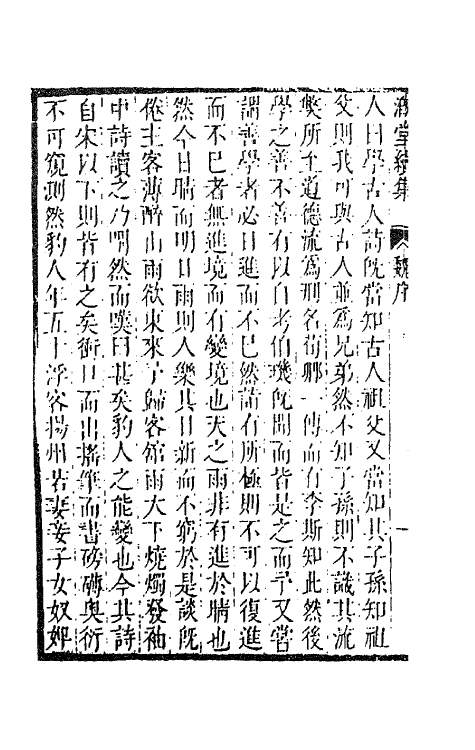 溉堂續集 魏序 一
人曰學古人詩旣當知古人祖父又當知其子孫知祖
父則我可與古人並爲兄弟然不知子孫則不識其流
獘所至道德流爲刑名荀卿一傳而有李斯知此然後
學之善不善有以自考伯璣旣聞而皆是之而予又嘗
謂善學者必日進而不已然詣有所極則不可以復進
而不已者無進境而有變境也天之雨非有進於晴也
然今日晴而明日雨則人樂其日新而不窮於是談旣
倦主客薄醉山雨欲東來予歸客館雨大下燒燭發袖
中詩讀之乃喟然而嘆曰甚矣豹人之能變也今其詩
自宋以下則皆有之矣衝口而出搖筆而書磅礴奥衍
不可窺測然豹人年五十浮客揚州若妻妾子女奴婢